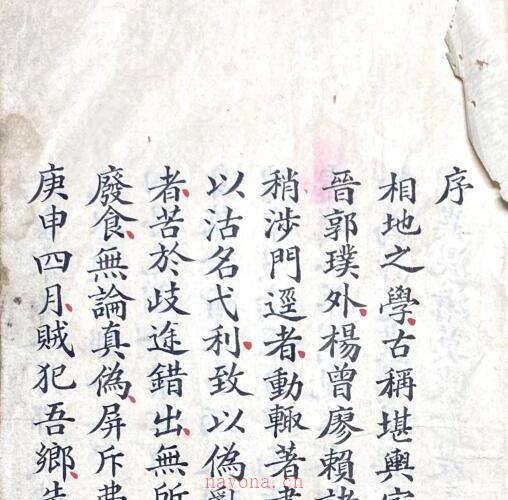 序
相地之學古稱堪輿
晉郭璞外楊曾廖賴
稍涉門逕者動輒著書
以沽名弋利致以偽
者苦於歧途錯出無所
廢食無論真偽屏斥
庚申四月賊犯吾鄉
nayona.cn